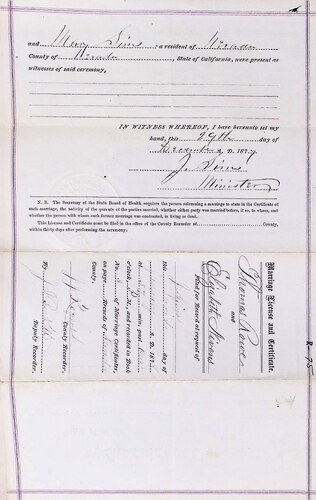 and Mary Sims a resident of
County of Nevada, State of California, were present as
witnesses of said ceremony,
IN WITNESS WHEREOF, I have hereunto set my
hand, this 29th day of
December A. D. 1877
J. Sims
Minister
N. B. The Secretary of the State Board of Health requires the person solemnizing a marriage to state in the Certificate of
such marriage, the nativity of the parents of the parties married, whether either party was married before, if so, to whom, and
whether the person with whom such former marriage was contracted, is living or dead.
This License and Certificate must be filed in the office of the County Recorder of County,
within thirty days after performing the ceremony.
Marriage License and Certificate.
Thomas Rowe
and
Elizabeth Stevens
Filed for Record at request of
J. Sims
this day of
A. D. 187
at min. past
o'clock, M., and recorded in Book
No. of Marriage Certificates,
on page Records of
County.
Recorder.
By
Deputy Recorder.